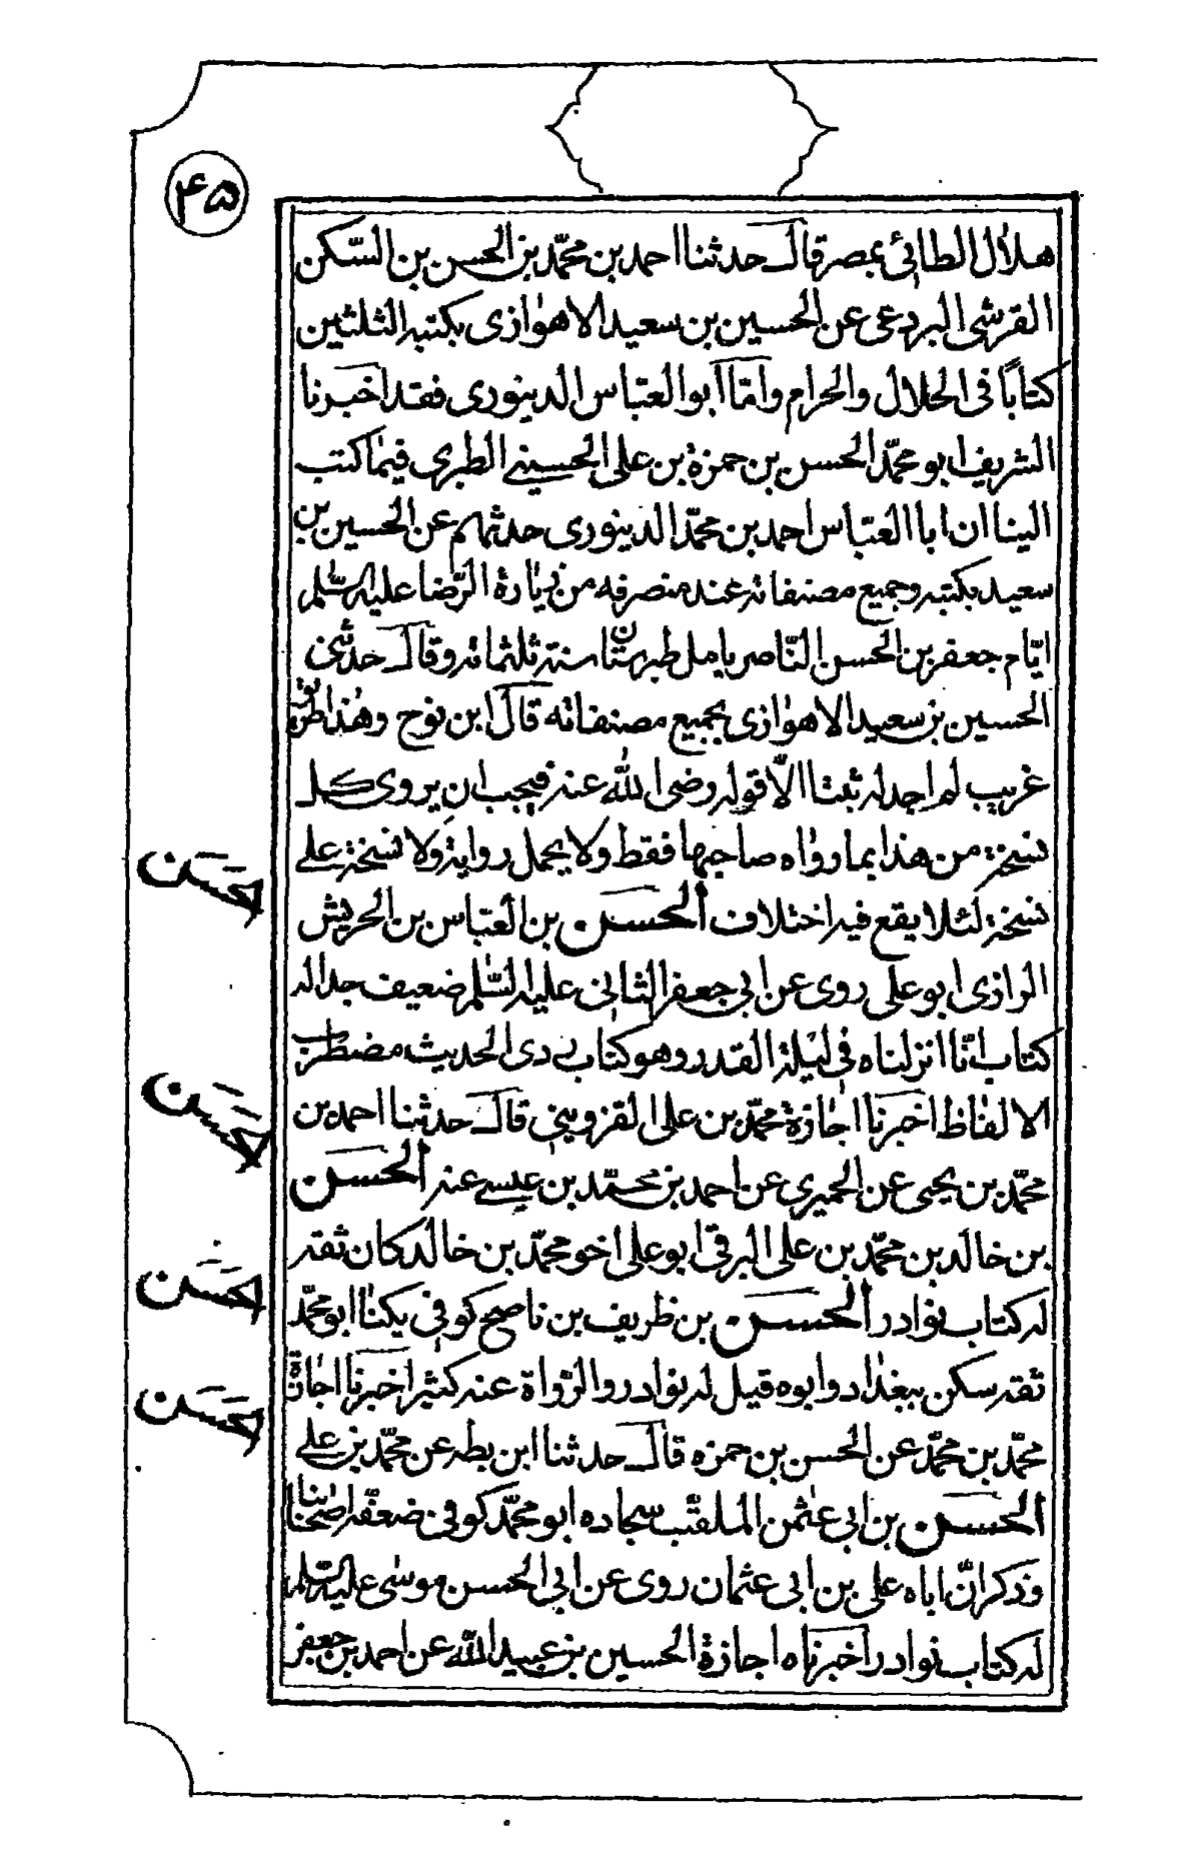 ۴۵
هلال الطائي بمصر قال حدثنا احمد بن محمّد بن الحسن بن السّكن
القرشي البردعي عن الحسين بن سعيد الاهوازى بكتبه الثلثين
كتابًا فى الحلال والحرام وامّا ابو العبّاس الدينورى فقد اخبرنا
الشريف ابو محمّد الحسن بن حمزة بن على الحسيني الطبرى فيما كتب
الينا ان ابا العبّاس احمد بن محمّد الدينورى حدثهم عن الحسين بن
سعيد بكتبه وجميع مصنفاته عند منصرفه من زيارة الرّضا عليه السّلم
ايّام جعفر بن الحسن النّاصر بامل طبرستان سنة ثلثمائه وقال حدثنى
الحسين بن سعيد الاهوازى بجميع مصنفاته قال ابن نوح وهذا طريق
غريب لم اجد له ثبتا الاّ قوله رضى الله عنه فيجب ان يروى كل
نسخة من هذا بما رواه صاحبها فقط ولا يحمل رواية ولا نسخة على
نسخة لئلا يقع فيه اختلاف الحسن بن العبّاس بن الحريش
الرازى ابو على روى عن ابي جعفر الثانى عليه السّلم ضعيف جدا له
كتاب انّا انزلناه في ليلة القدر وهو كتاب ردى الحديث مضطرب
الالفاظ اخبرنا اجازة محمّد بن على القزويني قال حدثنا احمد بن
محمّد بن يحيى عن الحميرى عن احمد بن محمّد بن عيسى عنه الحسن
بن خالد بن محمّد بن على البرقى ابو على اخو محمّد بن خالد كان ثقه
له كتاب نوادر الحسن بن ظريف بن ناصح كوفي يكنا ابو محمّد
ثقه سكن ببغداد وابوه قيل له نوادر والرّواة عنه كثير اخبرنا اجازة
محمّد بن محمّد عن الحسن بن حمزه قال حدثنا ابن بطه عن محمّد بن على
الحسن بن ابى عثمن الملقّب سجاده ابو محمّد كوفى ضعّفه اصحابنا
وذكر انّ اباه على بن ابى عثمان روى عن ابي الحسن موسى عليه السّلم
له كتاب نوادر اخبرناه اجازة الحسين بن عبيد الله عن احمد بن جعفر
حسن
حسن
حسن
حسن